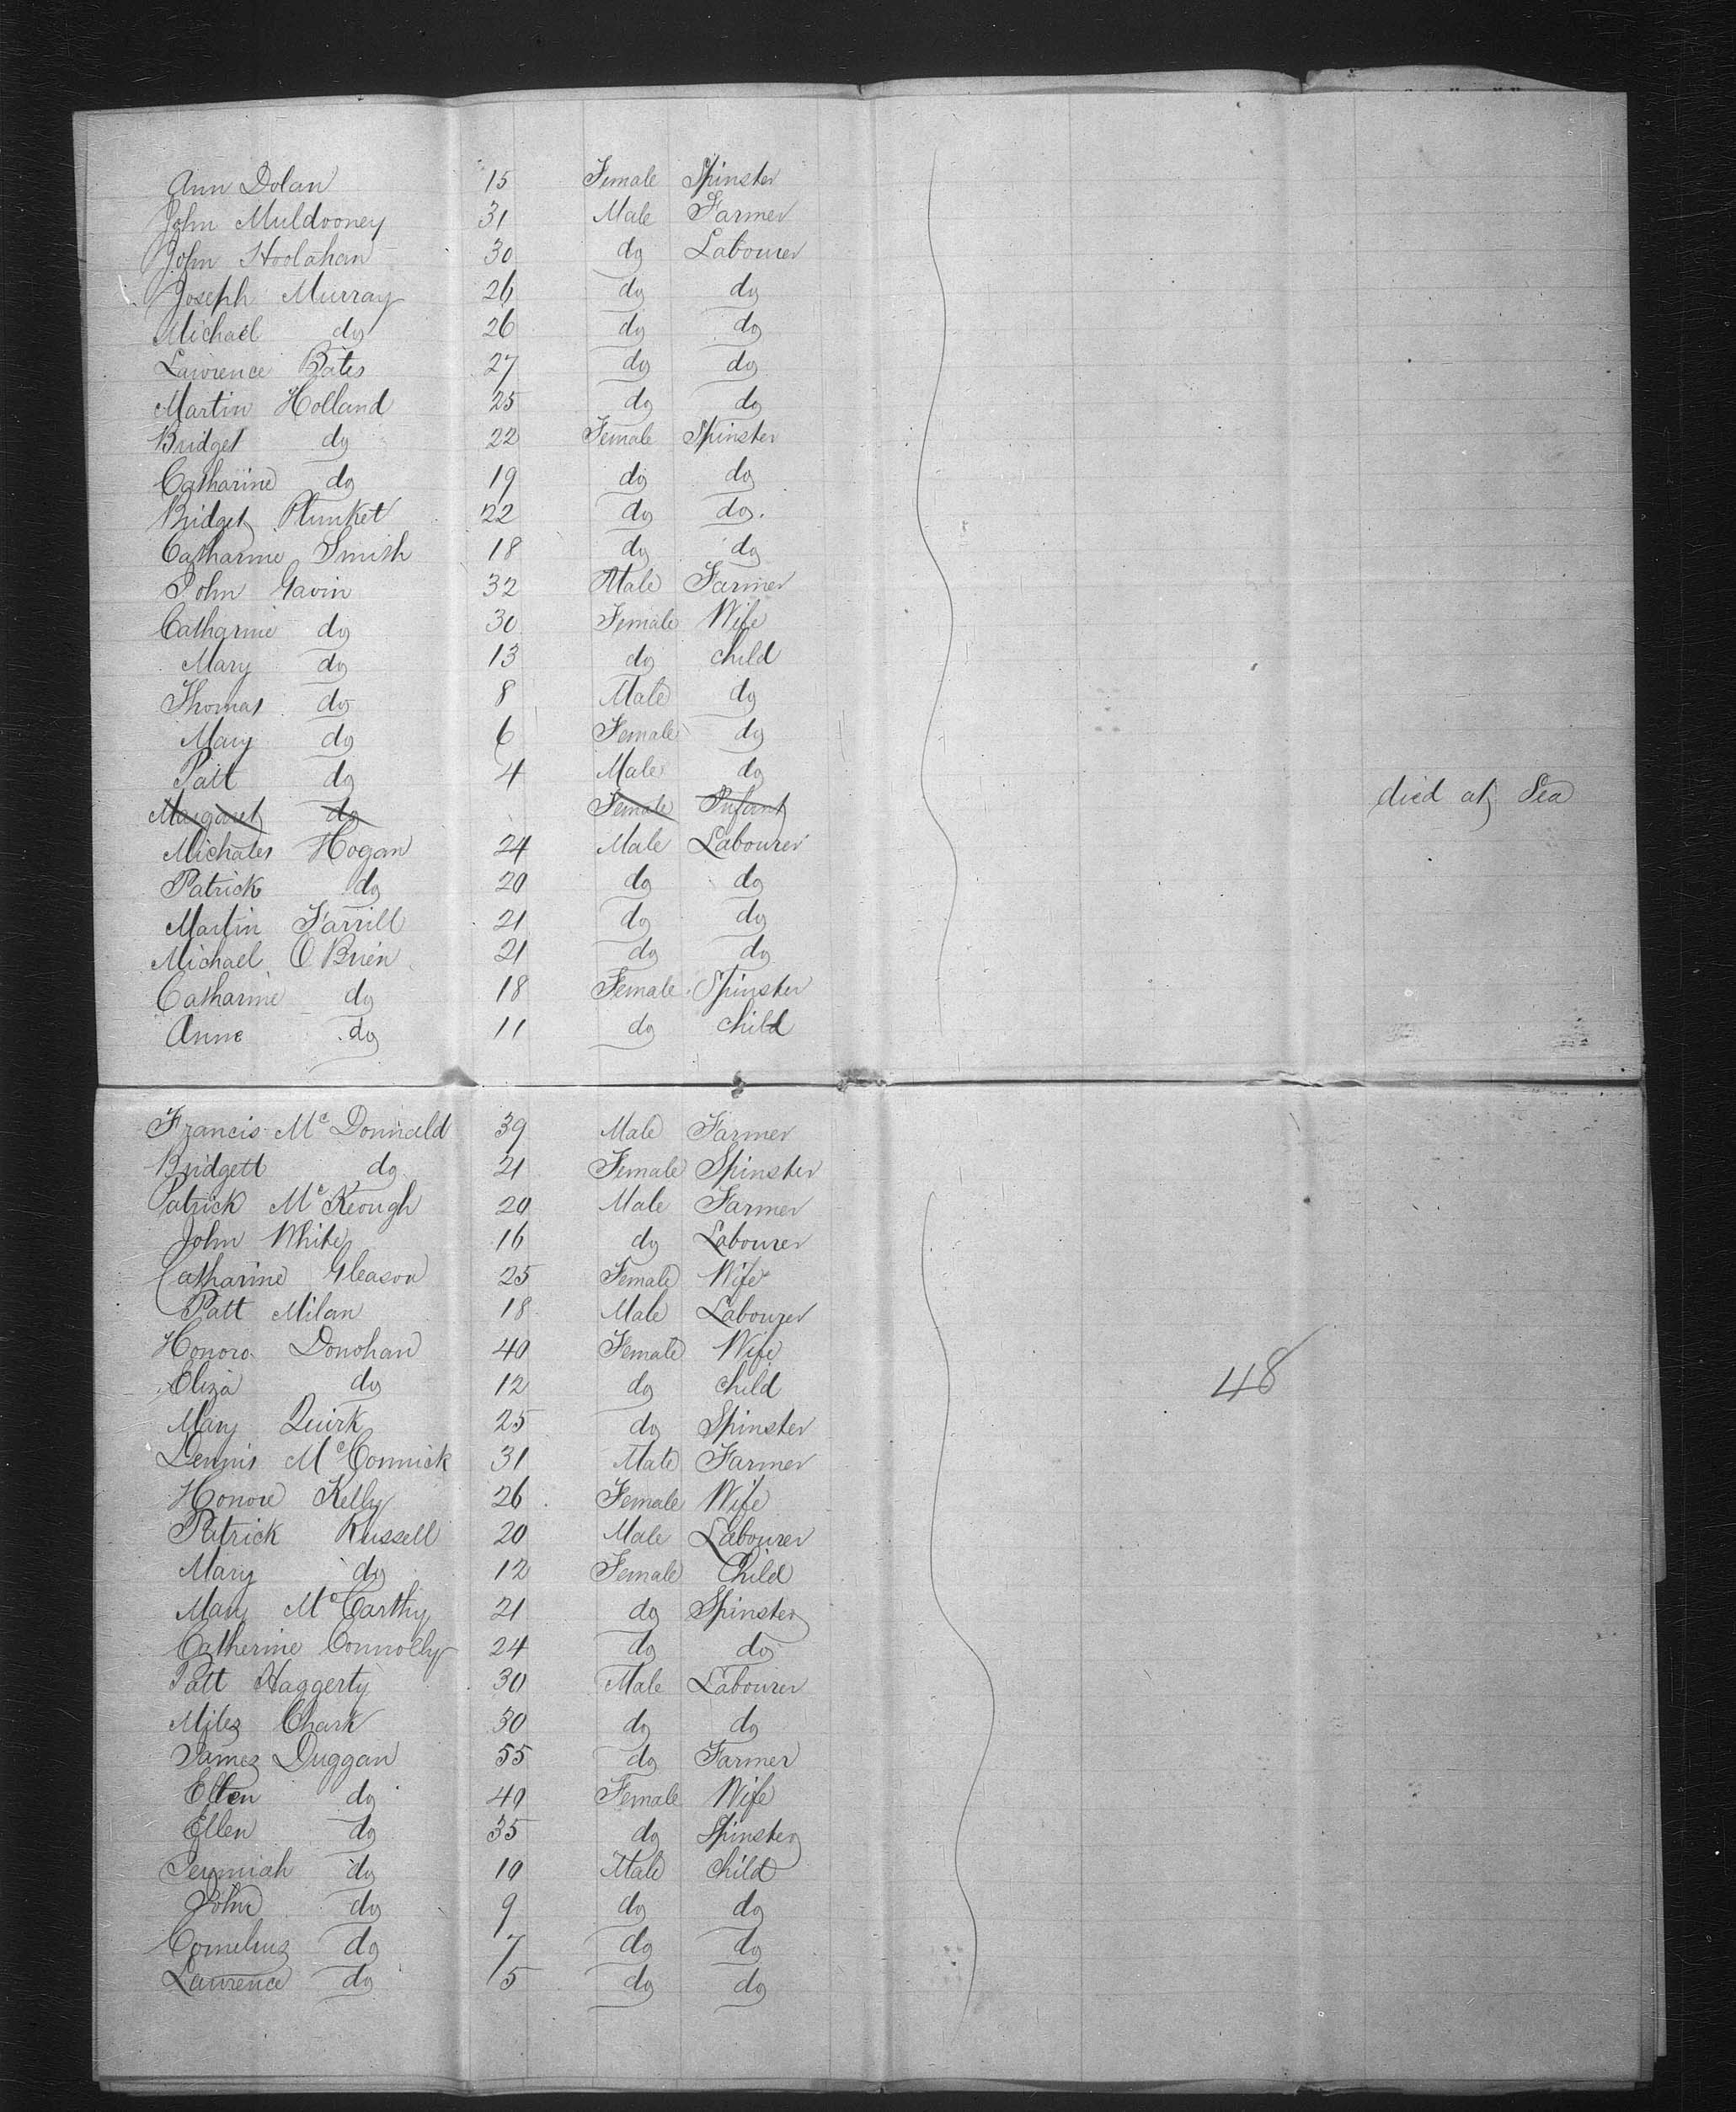 Ann Dolan 15 Female Spinster
John Muldooney 31 Male Farmer
John Hoolahan 30 do Labourer
Joseph Murray 26 do do
Michael do 26 do do
Lawrence Bates 27 do do
Martin Holland 25 do do
Bridget do 22 Female Spinster
Catharine do 19 do do
Bridget Plunket 22 do do.
Catharine Smith 18 do do
John Gavin 32 Male Farmer
Catharine do 30 Female Wife
Mary do 13 do child
Thomas do 8 Male do
Mary do 6 Female do
Patt do 4 Male do
Margaret do Female Infant died at Sea
Hogan 24 Male Labourer
Patrick do 20 do do
Martin Farrill 21 do do
Michael O Brien 21 do do
Catharine do 18 Female Spinster
Anne do 11 do child
Francis Mc Donnald 39 Male Farmer
Bridgett do 21 Female Spinster
Patrick Mc Keough 20 Male Farmer
John White 16 do Labourer
Catharine Gleason 25 Female Wife
Patt Milan 18 Male Labourer
Honora Donohan 40 Female Wife
Eliza do 12 do child
48
Mary Quirk 25 do Spinster
Dennis Mc Connick 31 Male Farmer
Honore Kelly 26 Female Wife
Patrick Russell 20 Male Labourer
Mary do 12 Female Child
Mary Mc Carthy 21 do Spinster
Catherine Connolly 24 do do
Patt Haggerty 30 Male Labourer
Miles Chark 30 do do
James Duggan 55 do Farmer
Ellen do 40 Female Wife
Ellen do 35 do Spinster
Jeremiah do 10 Male child
John do 9 do do
Cornelius do 7 do do
Lawrence do 5 do do